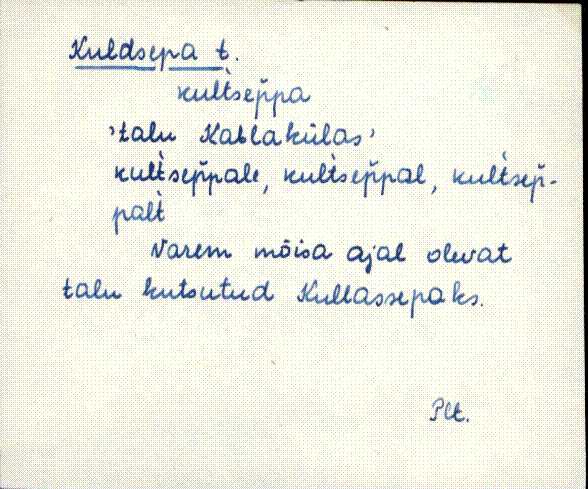 Kuldsepa t.
kult̀sep̆pa
'talu Kablakülas'
kult̀sep̆pale, kult̀sep̆pal, kult̀sep̆-
palt̀
Varem mõisa ajal olevat
talu kutsutud Kullassepaks.
Plt.